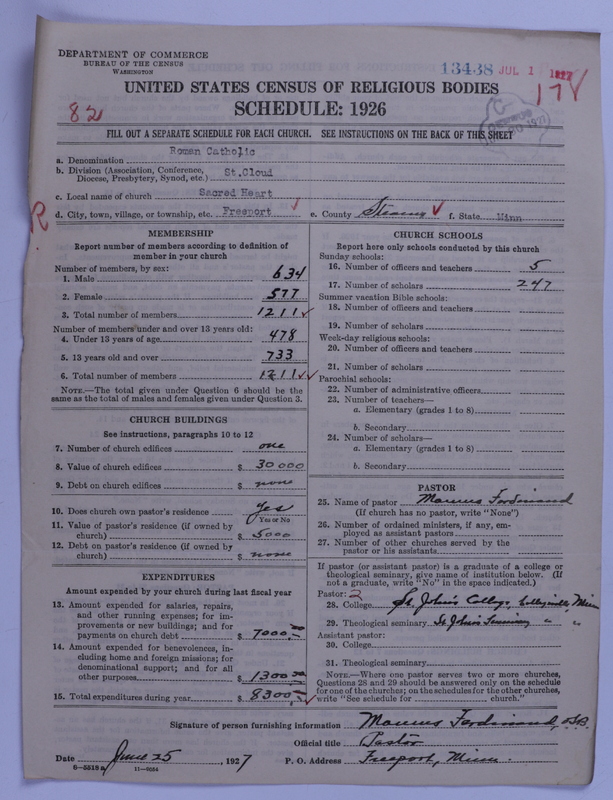 DEPARTMENT OF COMMERCE
BUREAU OF THE CENSUS
WASHINGTON
13438 JUL 1 1927
178
UNITED STATES CENSUS OF RELIGIOUS BODIES
SCHEDULE: 1926
82
FILL OUT A SEPARATE SCHEDULE FOR EACH CHURCH. SEE INSTRUCTIONS ON THE BACK OF THIS SHEET
a. Denomination Roman Catholic
b. Division (Association, Conference, Diocese, Presbytery, Synod, etc.) St.Cloud
c. Local name of church Sacred Heart
R
d. City, town, village, or township, etc. Freeport e. County Stearns f. State Minn
MEMBERSHIP
Report number of members according to definition of
member in your church
Number of members, by sex:
1. Male 634
2. Female 577
3. Total number of members 1211
Number of members under and over 13 years old:
4. Under 13 years of age 478
5. 13 years old and over 733
6. Total number of members 1211
NOTE.—The total given under Question 6 should be
same as the total of males and females given under Question 3.
CHURCH BUILDINGS
See instructions, paragraphs 10 to 12
7. Number of church edifices one
8. Value of church edifices $ 30000
9. Debt on church edifices $ none
10. Does church own pastor's residence Yes
Yes or No
11. Value of pastor's residence (if owned by
church) $ 5000
12. Debt on pastor's residence (if owned by
church) $ none
EXPENDITURES
Amount expended by your church during last fiscal year
13. Amount expended for salaries, repairs,
and other running expenses; for im-
provements or new buildings; and for
payments on church debt $ 7000.
14. Amount expended for benevolences, in-
cluding home and foreign missions; for
denominational support; and for all
other purposes $ 1300
15. Total expenditures during year $ 8300
CHURCH SCHOOLS
Report here only schools conducted by this church
Sunday schools:
16. Number of officers and teachers 5
17. Number of scholars 247
Summer vacation Bible schools:
18. Number of officers and teachers
19. Number of scholars
Week-day religious schools:
20. Number of officers and teachers
21. Number of scholars
Parochial schools:
22. Number of administrative officers
23. Number of teachers—
a. Elementary (grades 1 to 8)
b. Secondary
24. Number of scholars—
a. Elementary (grades 1 to 8)
b. Secondary
PASTOR
25. Name of pastor Marcus Ferdinand
(If church has no pastor, write "None")
26. Number of ordained ministers, if any, em-
ployed as assistant pastors
27. Number of other churches served by the
pastor or his assistants
If pastor (or assistant pastor) is a graduate of a college or
theological seminary, give name of institution below. (If
not a graduate, write "No" in the space indicated.)
Pastor: 2
28. College St. John's College, Collegeville, Minn
29. Theological seminary St John's Seminary " "
Assistant pastor:
30. College
31. Theological seminary
NOTE.—Where one pastor serves two or more churches,
Questions 28 and 29 should be answered only on the schedule
for one of the churches; on the schedules for the other churches,
write "See schedule for church."
Signature of person furnishing information Marcus Ferdinand, O.S.B.
Official title Pastor
Date June 25 1927 P. O. Address Freeport, Minn.